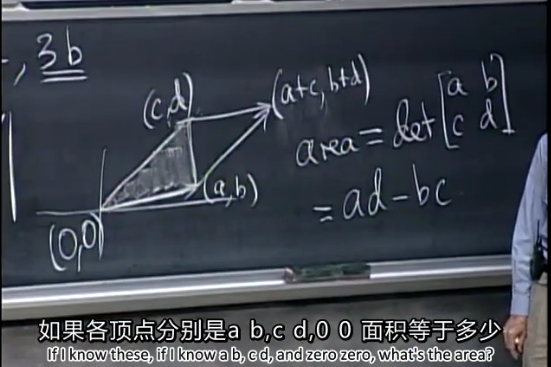 , 3b
(c,d)
(a+c, b+d)
(a,b)
(0,0)
area = det [a b
c d]
= ad - bc
如果各顶点分别是a b,c d,0 0 面积等于多少
If I know these, if I know a b, c d, and zero zero, what's the area?